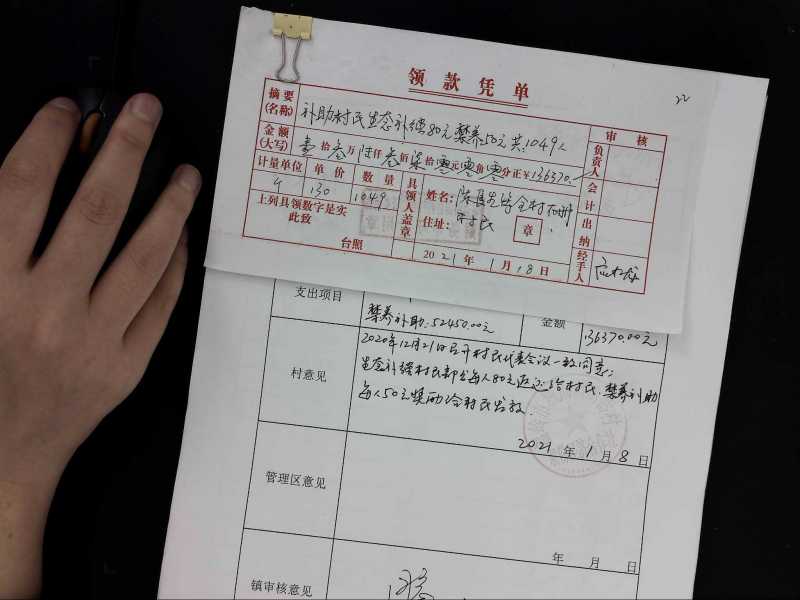 领款凭单
22
摘要(名称) 补助村民生态补偿80元禁养50元共1049人
审核
金额(大写) 壹拾叁万陆仟叁佰柒拾零元零角零分正¥136370.
负责人
计量单位 单价 数量 具领人盖章 姓名: 全村
会计
个 130 1049 住址: 章
上列具领数字是实
此致
出纳
台照 2021年1月18日
经手人
支出项目 禁养补助:52450.00元 金额 136370.00元
村意见 2020年12月21日召开村民代表会议一致同意:
生态补偿村民部分每人80元返还给村民.禁养补助
每人50元奖励给村民发放
2021年1月8日
管理区意见
年 月 日
镇审核意见